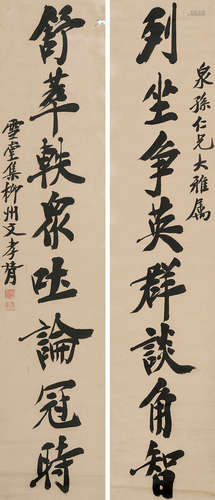 泉孫仁兄大雅属
列坐争英群談角智
舒萃軼眾吐論冠時
雪堂集柳州文李瑞